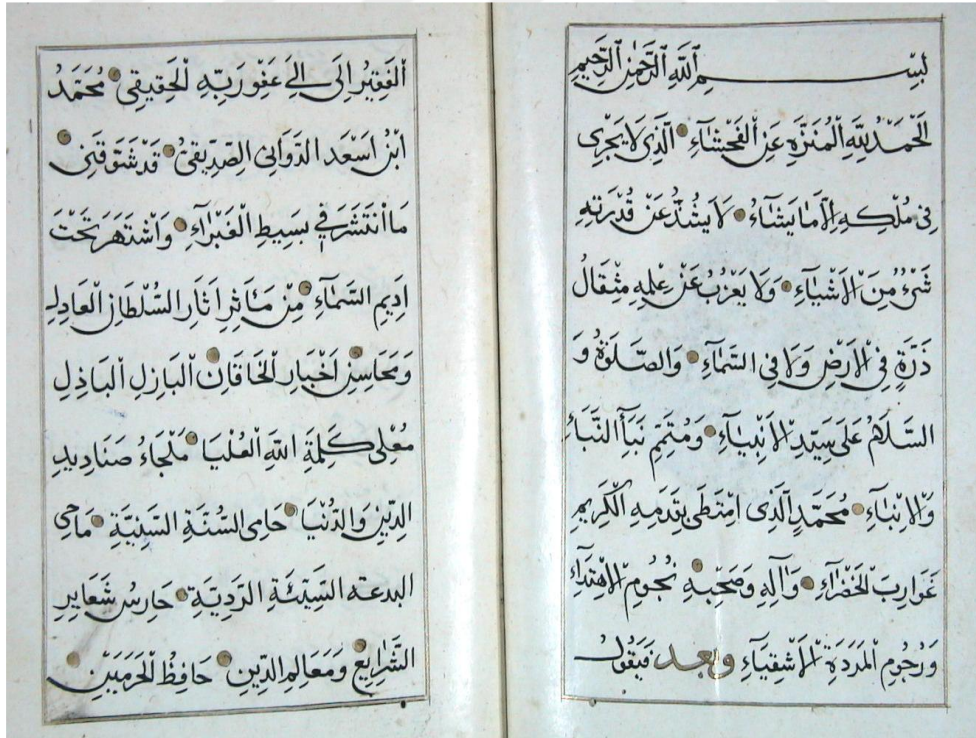 بِسْمِ اللَّهِ الرَّحْمٰنِ الرَّحِيمِ
اَلْحَمْدُ لِلَّهِ الْمُنَزَّهِ عَنِ الْفَحْشَاءِ الَّذِى لَا يَجْرِى
فِى مُلْكِهِ اِلَّا مَا يَشَاءُ لَا يَشُذُّ عَنْ قُدْرَتِهِ
شَىْءٌ مِنَ الْاَشْيَاءِ وَلَا يَعْزُبُ عَنْ عِلْمِهِ مِثْقَالُ
ذَرَّةٍ فِى الْاَرْضِ وَلَا فِى السَّمَاءِ وَالصَّلَوةُ وَ
السَّلَامُ عَلَى سَيِّدِ الْاَنْبِيَاءِ وَمُتَمِّمِ نَبَأِ النَّبَاءِ
وَالْاِنْبَاءِ مُحَمَّدٍ الَّذِى امْتَطَى بِقَدَمِهِ الْكَرِيمِ
غَوَارِبَ الْخَضْرَاءِ وَآلِهِ وَصَحْبِهِ نُجُومِ الْاِهْتِدَاءِ
وَرُجُومِ الْمَرَدَةِ الْاَشْقِيَاءِ وبعد فَيَقُولُ
اَلْفَقِيرُ اِلَى اِلَى عَفْوِ رَبِّهِ الْحَقِيقِى مُحَمَّدُ
ابْنُ اَسْعَدَ الدَّوَانِى الصِّدِّيقِىُّ قَدْ شَوَّقَنِى
مَا انْتَشَرَ فِى بَسِيطِ الْغَبْرَاءِ وَاشْتَهَرَ تَحْتَ
اَدِيمِ السَّمَاءِ مِنْ مَآثِرِ اٰثَارِ السُّلْطَانِ الْعَادِلِ
وَمَحَاسِنِ اَخْبَارِ الْخَاقَانِ الْبَازِلِ الْبَاذِلِ
مُعْلِى كَلِمَةِ اللَّهِ الْعُلْيَا مَلْجَاءُ صَنَادِيدِ
الدِّينِ وَالدُّنْيَا حَامِى السُّنَّةِ السَّنِيَّةِ مَاحِى
البدعة السَّيِّئَةِ الرَّدِيَّةِ حَارِسُ شَعَايِرِ
الشَّرَايِعِ وَمَعَالِمِ الدِّينِ حَافِظُ الْحَرَمَيْنِ